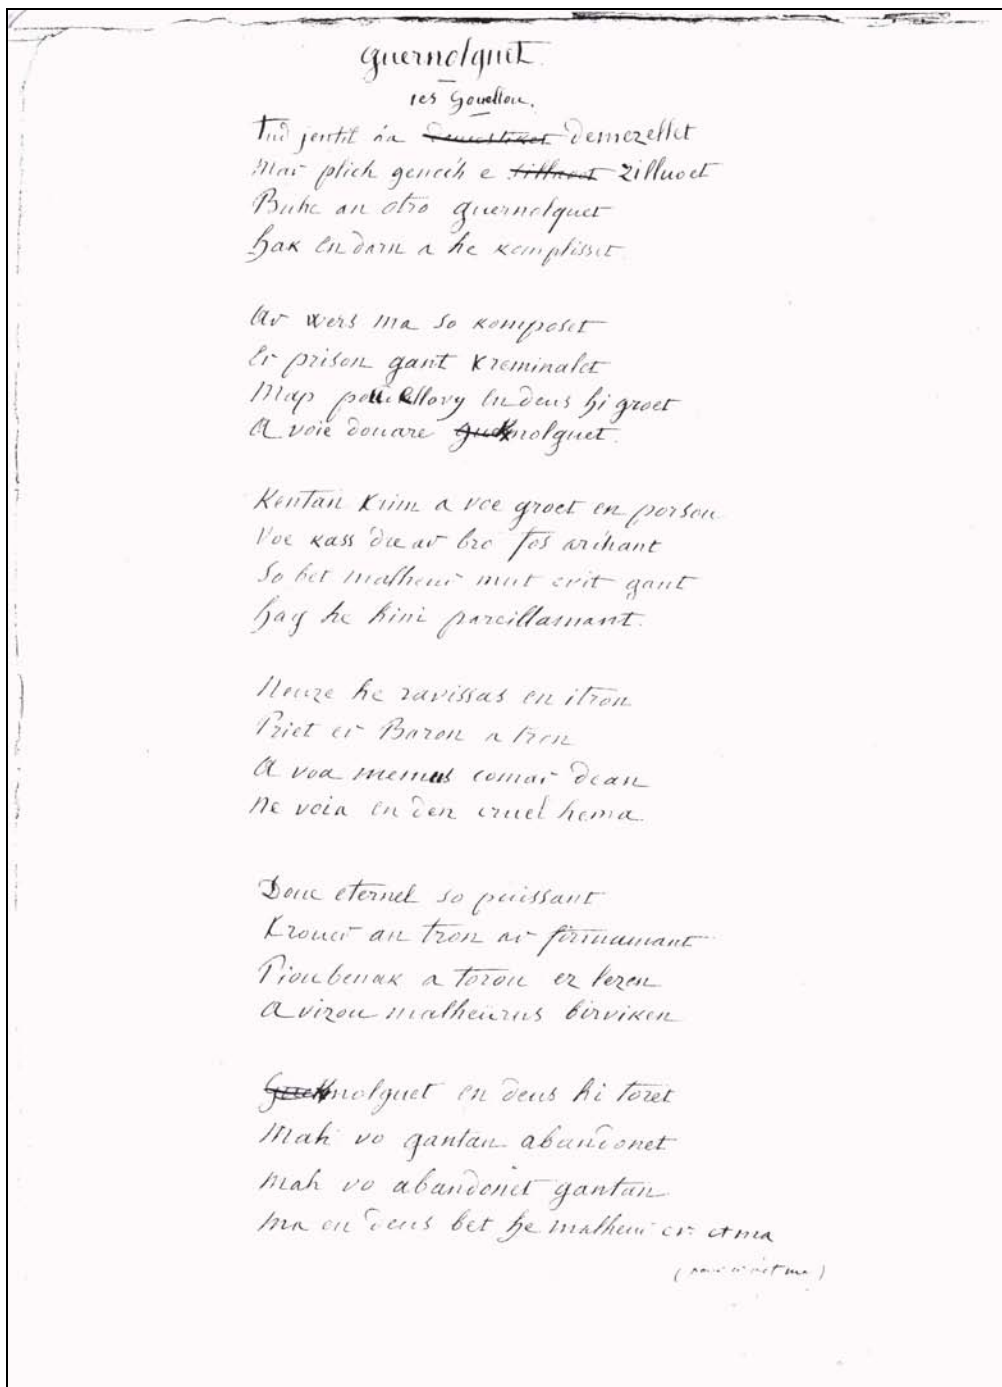 Guernolquet
ies Gouellou.
Tud jentil ha demezellet
Mar plich geneĥ e zilluoet
Buhe an otro guernolquet
hak en darn a he komplisset

Ar wers ma so komposet
Er prison gant kreminalet
Map en deus hi groet
A voie douare nolguet.

Kentan krim a voe groet en porsou
Voe kass d'ie ar bro fos ariĥant
So bet malheur mut evit gant
hag he hini pareillamant.

Neuze he ravissas en itron
Priet er Baron a tron
A voa memes comar dean
ne voia en den cruel hema

Doue eternel so puissant
Krouer an tron ar firmamant
Pioubenak a torou ez lezen
A vizou malheürus birviken

nolguet en deus hi toret
Mah vo gantan abandonet
mah vo abandonet gantan
ma en deus bet he malheur er et ma